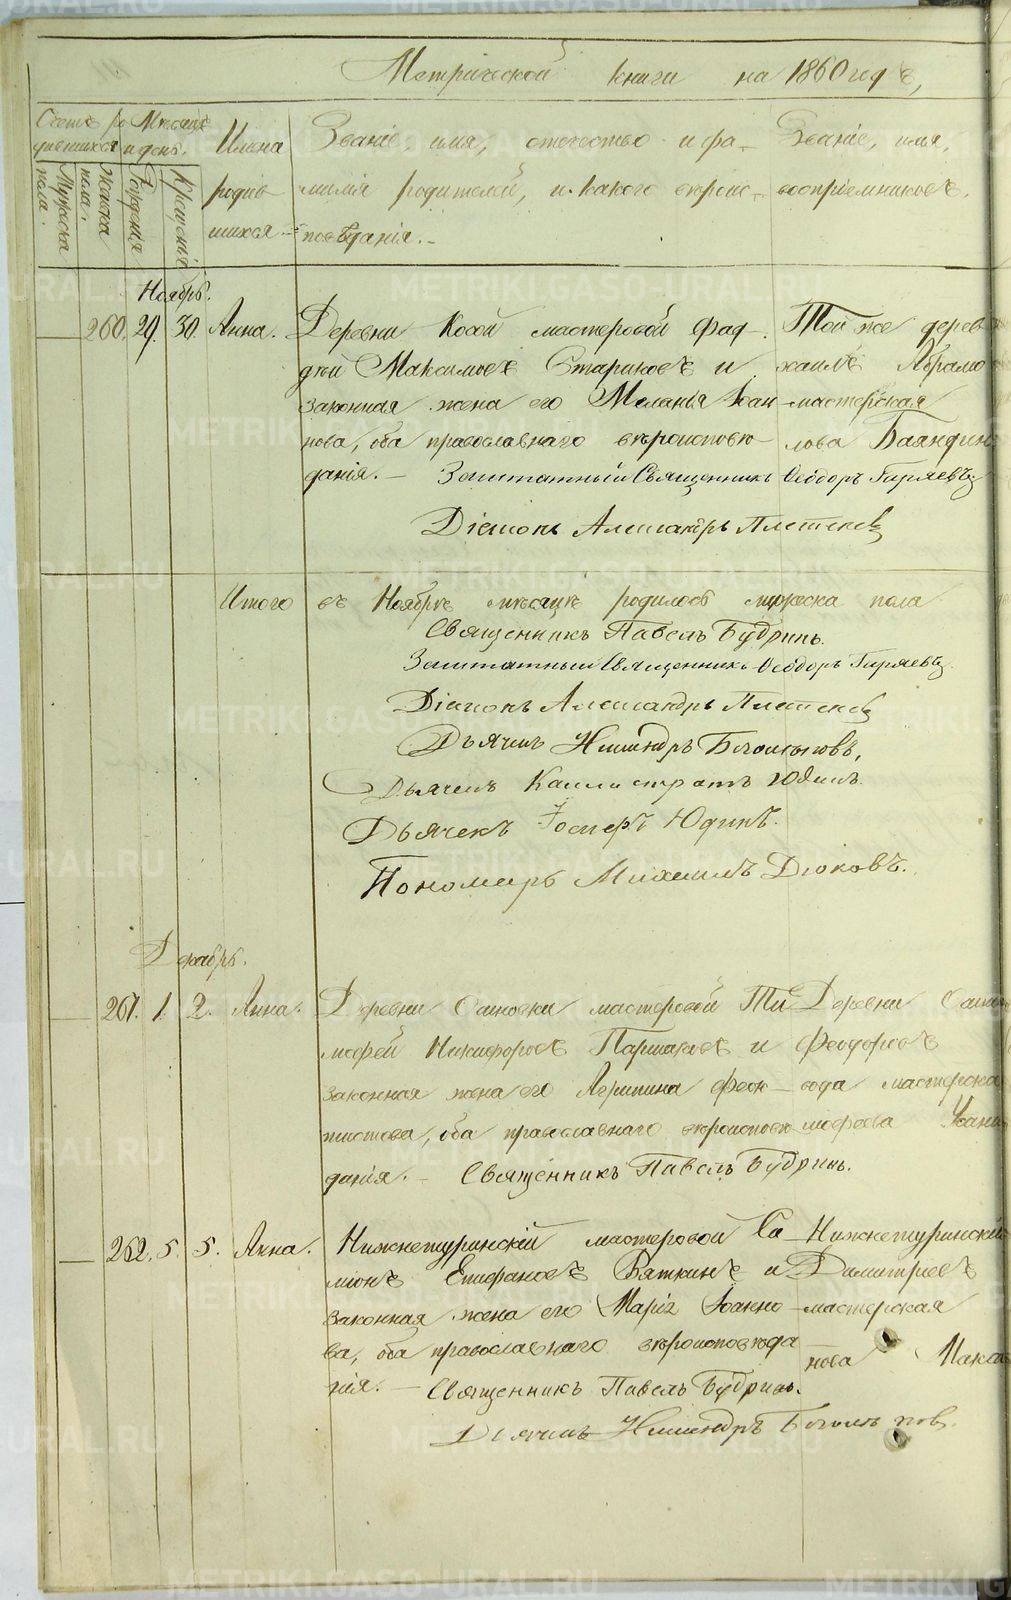 Метрической книги на 1860 годъ,
Счетъ ро Мѣсяцъ
дившихся и день.
Мужеска пола.
Женска пола.
Рожденія
Крещенія
Имена
родив
шихся.
Званіе, имя, отечество и фа-
милія родителей, и какого вѣроис-
повѣданія.
Званіе, имя,
воспріемниковъ.
Ноябрь.
260. 29. 30. Анна. Деревни Косой мастеровой Фад
дѣй Максимовъ Стариковъ и
законная жена его Меланья Іоан
нова, оба православнаго вѣроисповѣ
данія. — Заштатный Священникъ Ѳеодоръ Гиряевъ
Діаконъ Александръ Плетенев
Той же дерев
Абрамо
мастерская
лова Баяндин
Итого въ Ноябрѣ мѣсяцѣ родилось мужеска пола
Священникъ Павелъ Будринъ.
Заштатный Священникъ Ѳеодоръ Гиряевъ
Діаконъ Александръ Плетенев
Дьячекъ
Дьячекъ Каллистратъ Юдинъ.
Дьячекъ Юдинъ.
Пономарь Михаилъ Дюковъ.
Декабрь.
261. 1. 2. Анна. Деревни мастеровой Ти
мофей Никифоровъ и
законная жена его Агрипина Феок
тистова, оба православнаго вѣроисповѣ
данія. — Священникъ Павелъ Будринъ.
Деревни
Феодоровъ
вода мастерска
мофеева Іоанн
262. 5. 5. Анна. Нижнетуринскій мастеровой Си
міонъ Епифановъ Вяткинъ и
законная жена его Марія Іоанно
ва, оба православнаго вѣроисповѣда
нія. — Священникъ Павелъ Будринъ.
Дьячекъ
Нижнетуринскій
Димитріевъ
мастерская
нова
METRIKI.GASO-URAL.RU